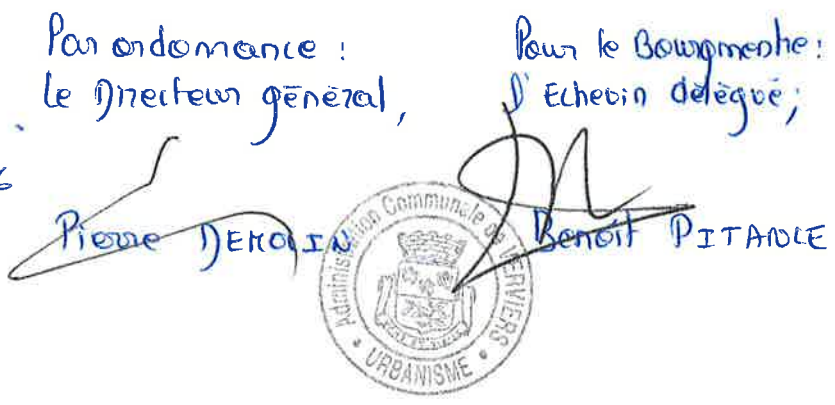 Par ordonnance :
Le Directeur général,
Pierre DEMOLIN
Pour le Bourgmestre :
l'Echevin délégué;
Benoit PITANCE
Administration Communale de VERVIERS
• URBANISME •